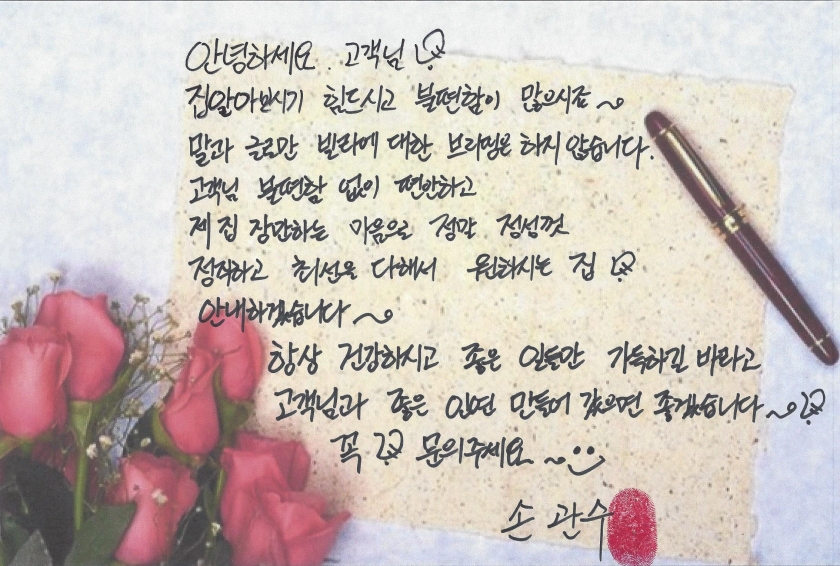 안녕하세요. 고객님
집알아보시기 힘드시고 불편함이 많으시죠~
말과 글로만 빌라에 대한 브리핑은 하지 않습니다.
고객님 불편함 없이 편안하고
제 집 장만하는 마음으로 정말 정성껏
정직하고 최선을 다해서 원하시는 집
안내하겠습니다~
항상 건강하시고 좋은 일들만 가득하길 바라고
고객님과 좋은 인연 만들어 갔으면 좋겠습니다~
꼭 문의주세요~
손관수